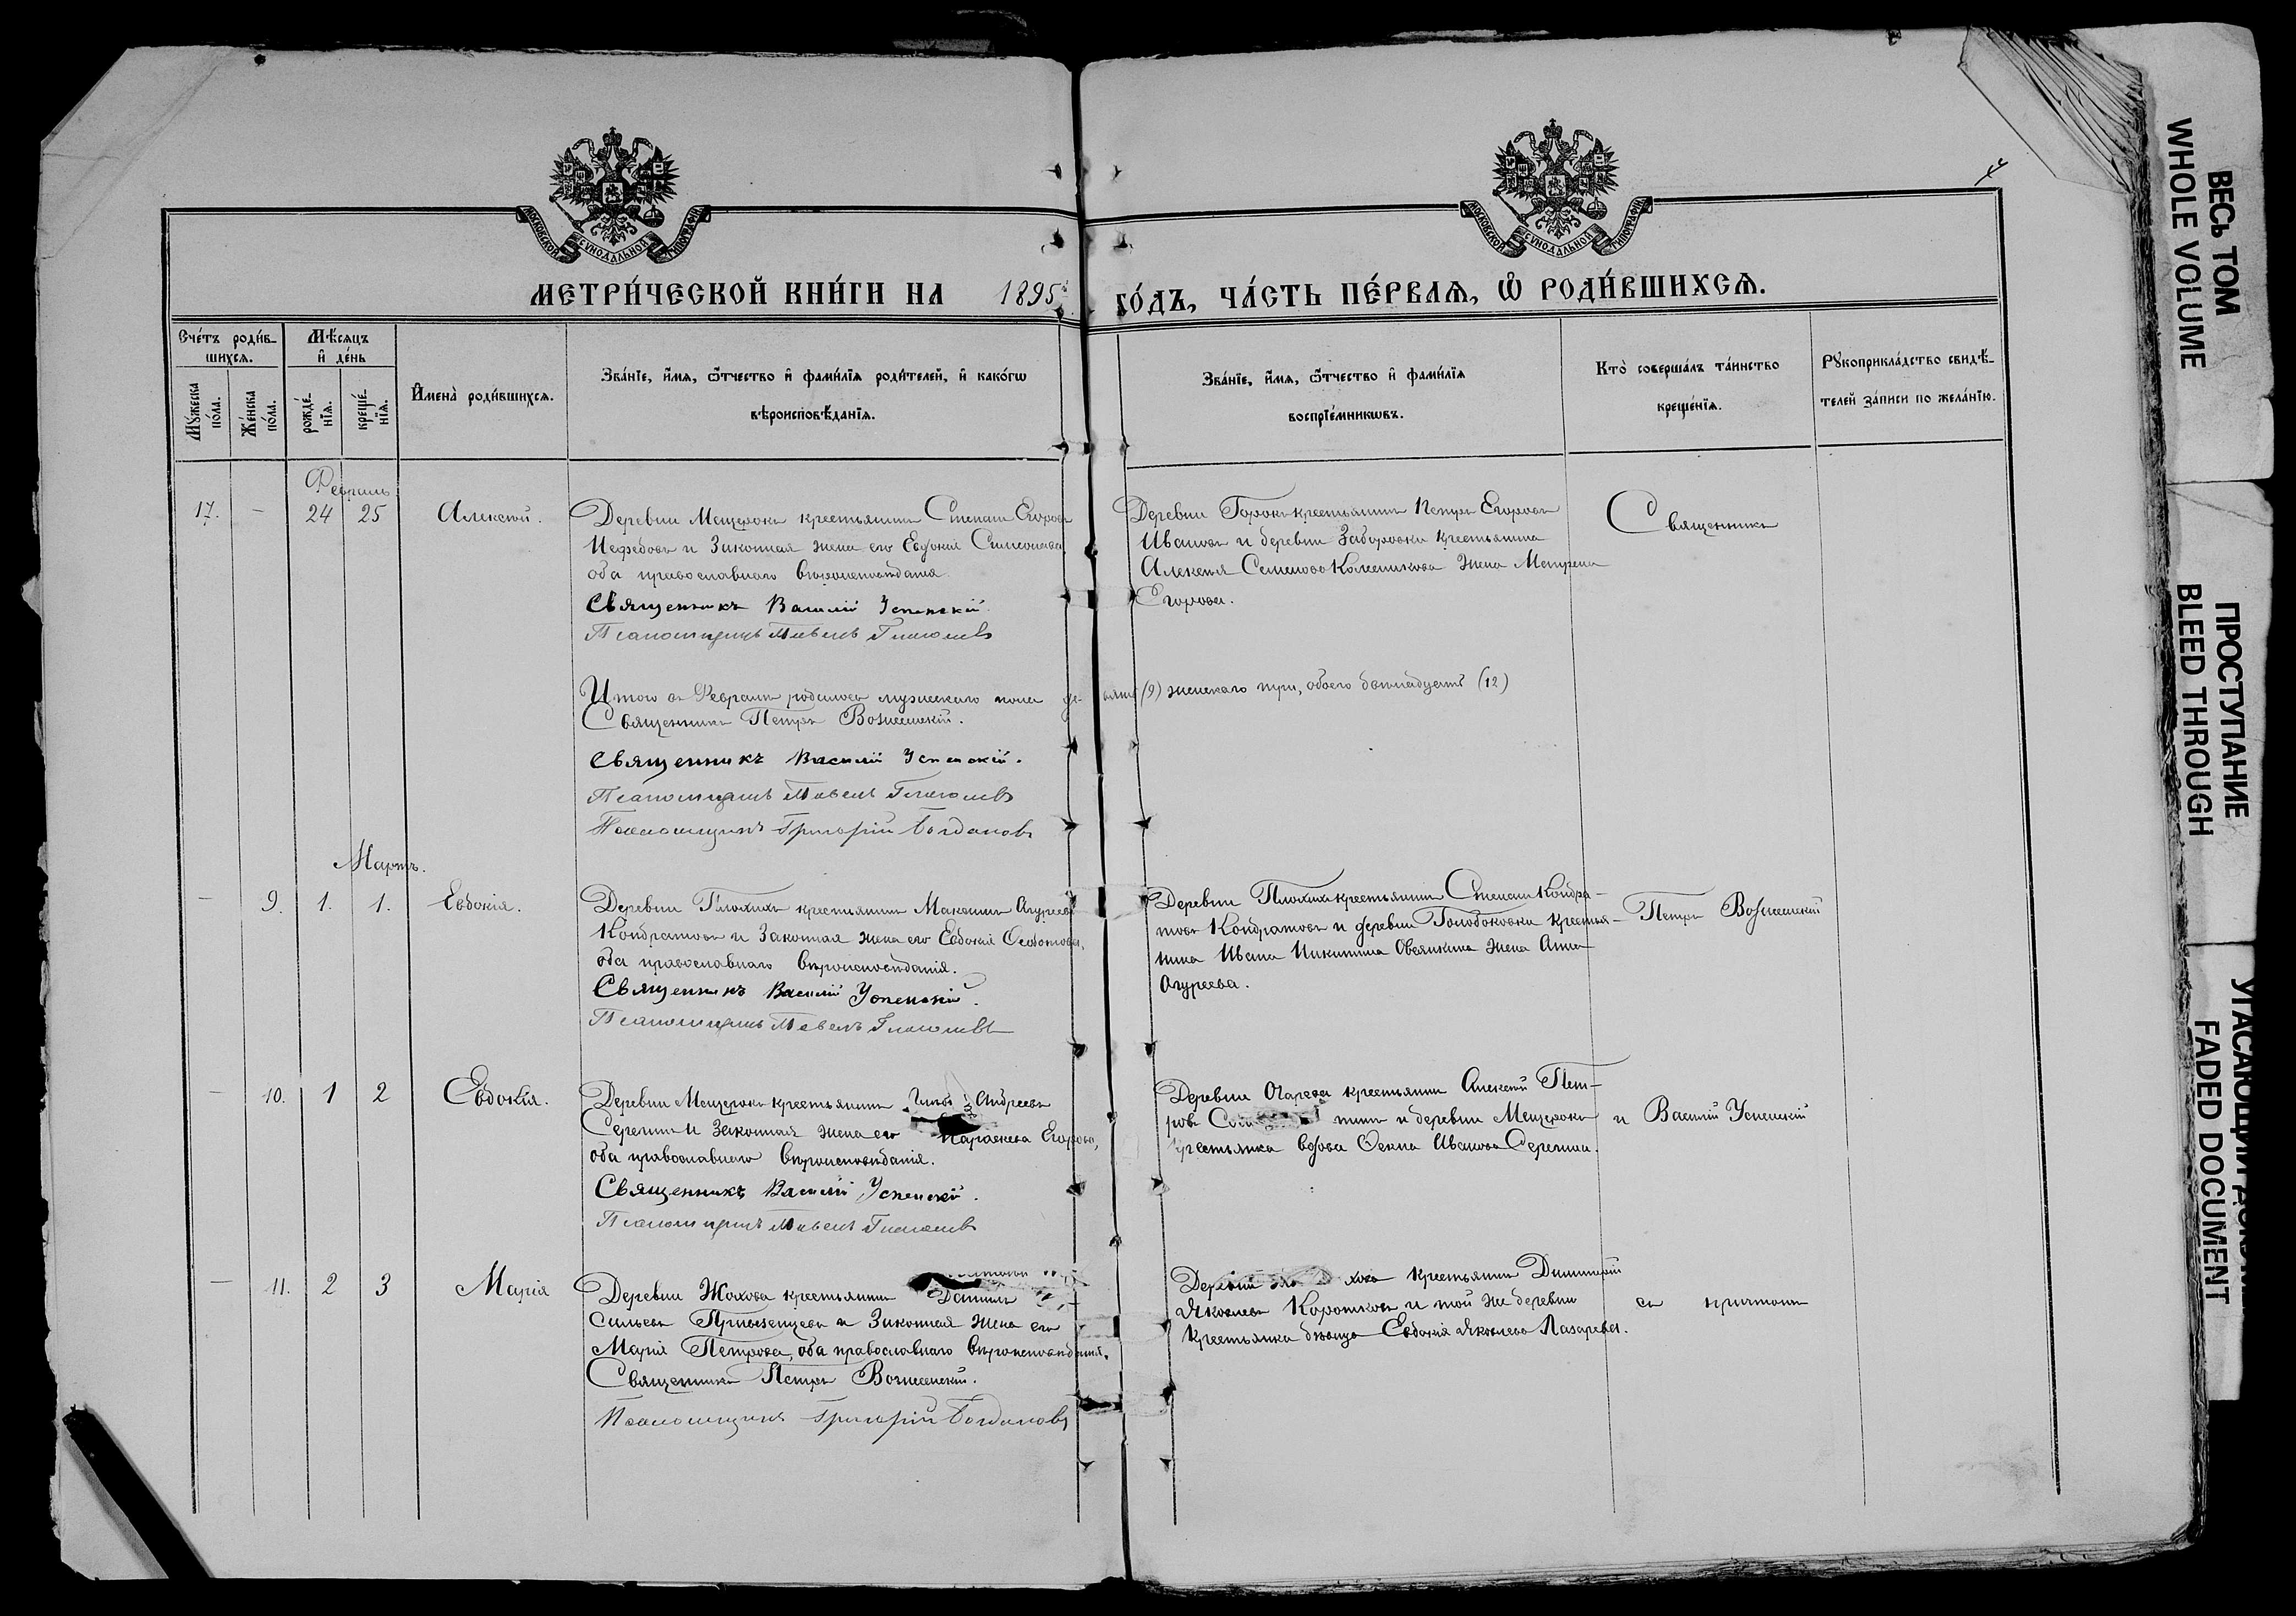 МОСКОВСКОЙ СѴНОДАЛЬНОЙ ТИПОГРАФІИ
МОСКОВСКОЙ СѴНОДАЛЬНОЙ ТИПОГРАФІИ
4
МЕТРИ́ЧЕСКОЙ КНИ́ГИ НА 1895й ГО́ДЪ, ЧА́СТЬ ПЕ́РВАѦ, Ѡ҆ РОДИ́ВШИХСѦ.
Сче́тъ роди́в-
шихсѧ.
Мꙋ́жеска по́ла.
Же́нска по́ла.
Мѣ́сѧцъ и҆ де́нь
рожде́-
нїѧ.
креще́-
нїѧ.
И҆мена̀ роди́вшихсѧ.
Зва́нїе, и҆́мѧ, ѻ҆́тчество и҆ фами́лїѧ роди́телей, и҆ како́гѡ
вѣроисповѣ́данїѧ.
Зва́нїе, и҆́мѧ, ѻ҆́тчество и҆ фами́лїѧ
воспрїе́мникѡвъ.
Кто̀ соверша́лъ та́инство
креще́нїѧ.
Рꙋкоприкла́дство свидѣ́-
телей за́писи по жела́нїю.
Февраль
17. – 24 25 Алексѣй.
Деревни Мещерокъ крестьянинъ Степанъ Егоровъ
Нефедовъ и законная жена его Евдокія Симеонова
оба православнаго вѣроисповѣданія.
Священникъ Василій Успенскій.
Псаломщикъ Павелъ Глаголевъ
Деревни Горокъ крестьянинъ Петръ Егоровъ
Ивановъ и деревни Заборовки крестьянина
Алексѣя Семенова Колесникова жена Матрена
Егорова.
Священники
Итого въ Февралѣ родилось мужескаго пола де-вять (9) женскаго три, обоего двѣнадцать (12)
Священникъ Петръ Вознесенскій.
Священникъ Василій Успенскій.
Псаломщикъ Павелъ Глаголевъ
Псаломщикъ Григорій Богдановъ
Мартъ.
– 9. 1. 1. Евдокія.
Деревни Плохихъ крестьянинъ Максимъ Агуреевъ
Кондратовъ и законная жена его Евдокія Ѳедотова,
оба православнаго вѣроисповѣданія.
Священникъ Василій Успенскій.
Псаломщикъ Павелъ Глаголевъ
Деревни Плохихъ крестьянинъ Степанъ Кондра-
товъ Кондратовъ и деревни Голодоковки крестья-
нина Ивана Никитина Овсянкина жена Анна
Агуреева.
Петръ Вознесенскій
– 10. 1 2 Евдокія.
Деревни Мещерокъ крестьянинъ Андреевъ
Серегинъ и законная жена его Параскева Егорова,
оба православнаго вѣроисповѣданія.
Священникъ Василій Успенскій.
Псаломщикъ Павелъ Глаголевъ
Деревни Огарева крестьянинъ Алексѣй Пет-
ровъ нинъ и деревни Мещерокъ
крестьянка вдова Ѳекла Иванова Серегина.
и Василій Успенскій
– 11. 2 3 Марія
Деревни Жохова крестьянинъ Даніилъ
сильевъ и законная жена его
Марія Петрова, оба православнаго вѣроисповѣданія.
Священникъ Петръ Вознесенскій.
Псаломщикъ Григорій Богдановъ
Деревни хова крестьянинъ Димитрій
Яковлевъ Коротковъ и той же деревни
крестьянка дѣвица Евдокія Яковлева Лазарева.
съ причтомъ
ВЕСЬ ТОМ
WHOLE VOLUME
ПРОСТУПАНИЕ
BLEED THROUGH
УГАСАЮЩИЙ
FADED DOCUMENT